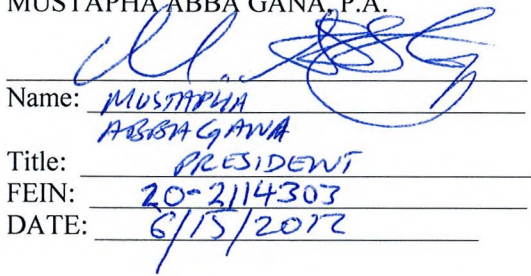 MUSTAPHA ABBA GANA, P.A.
Name: MUSTAPHA
ABBA GANA
Title: PRESIDENT
FEIN: 20-2114303
DATE: 6/15/2012